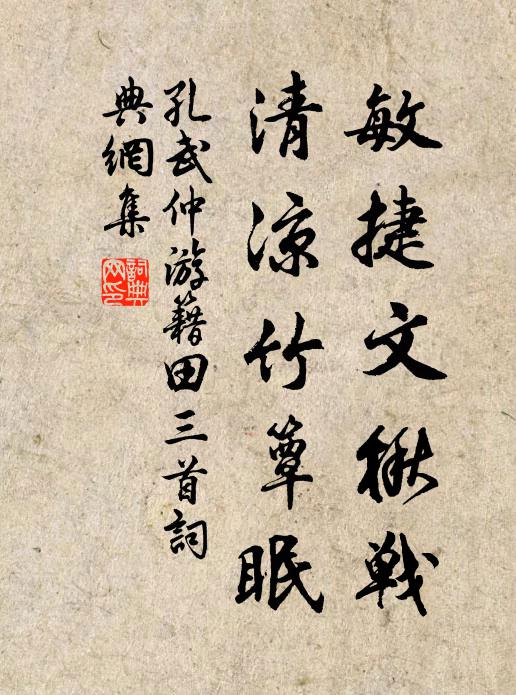 敏捷文楸戰
清凉竹簟眠
孔武仲游籍田三首詞
典網集
詞典網印